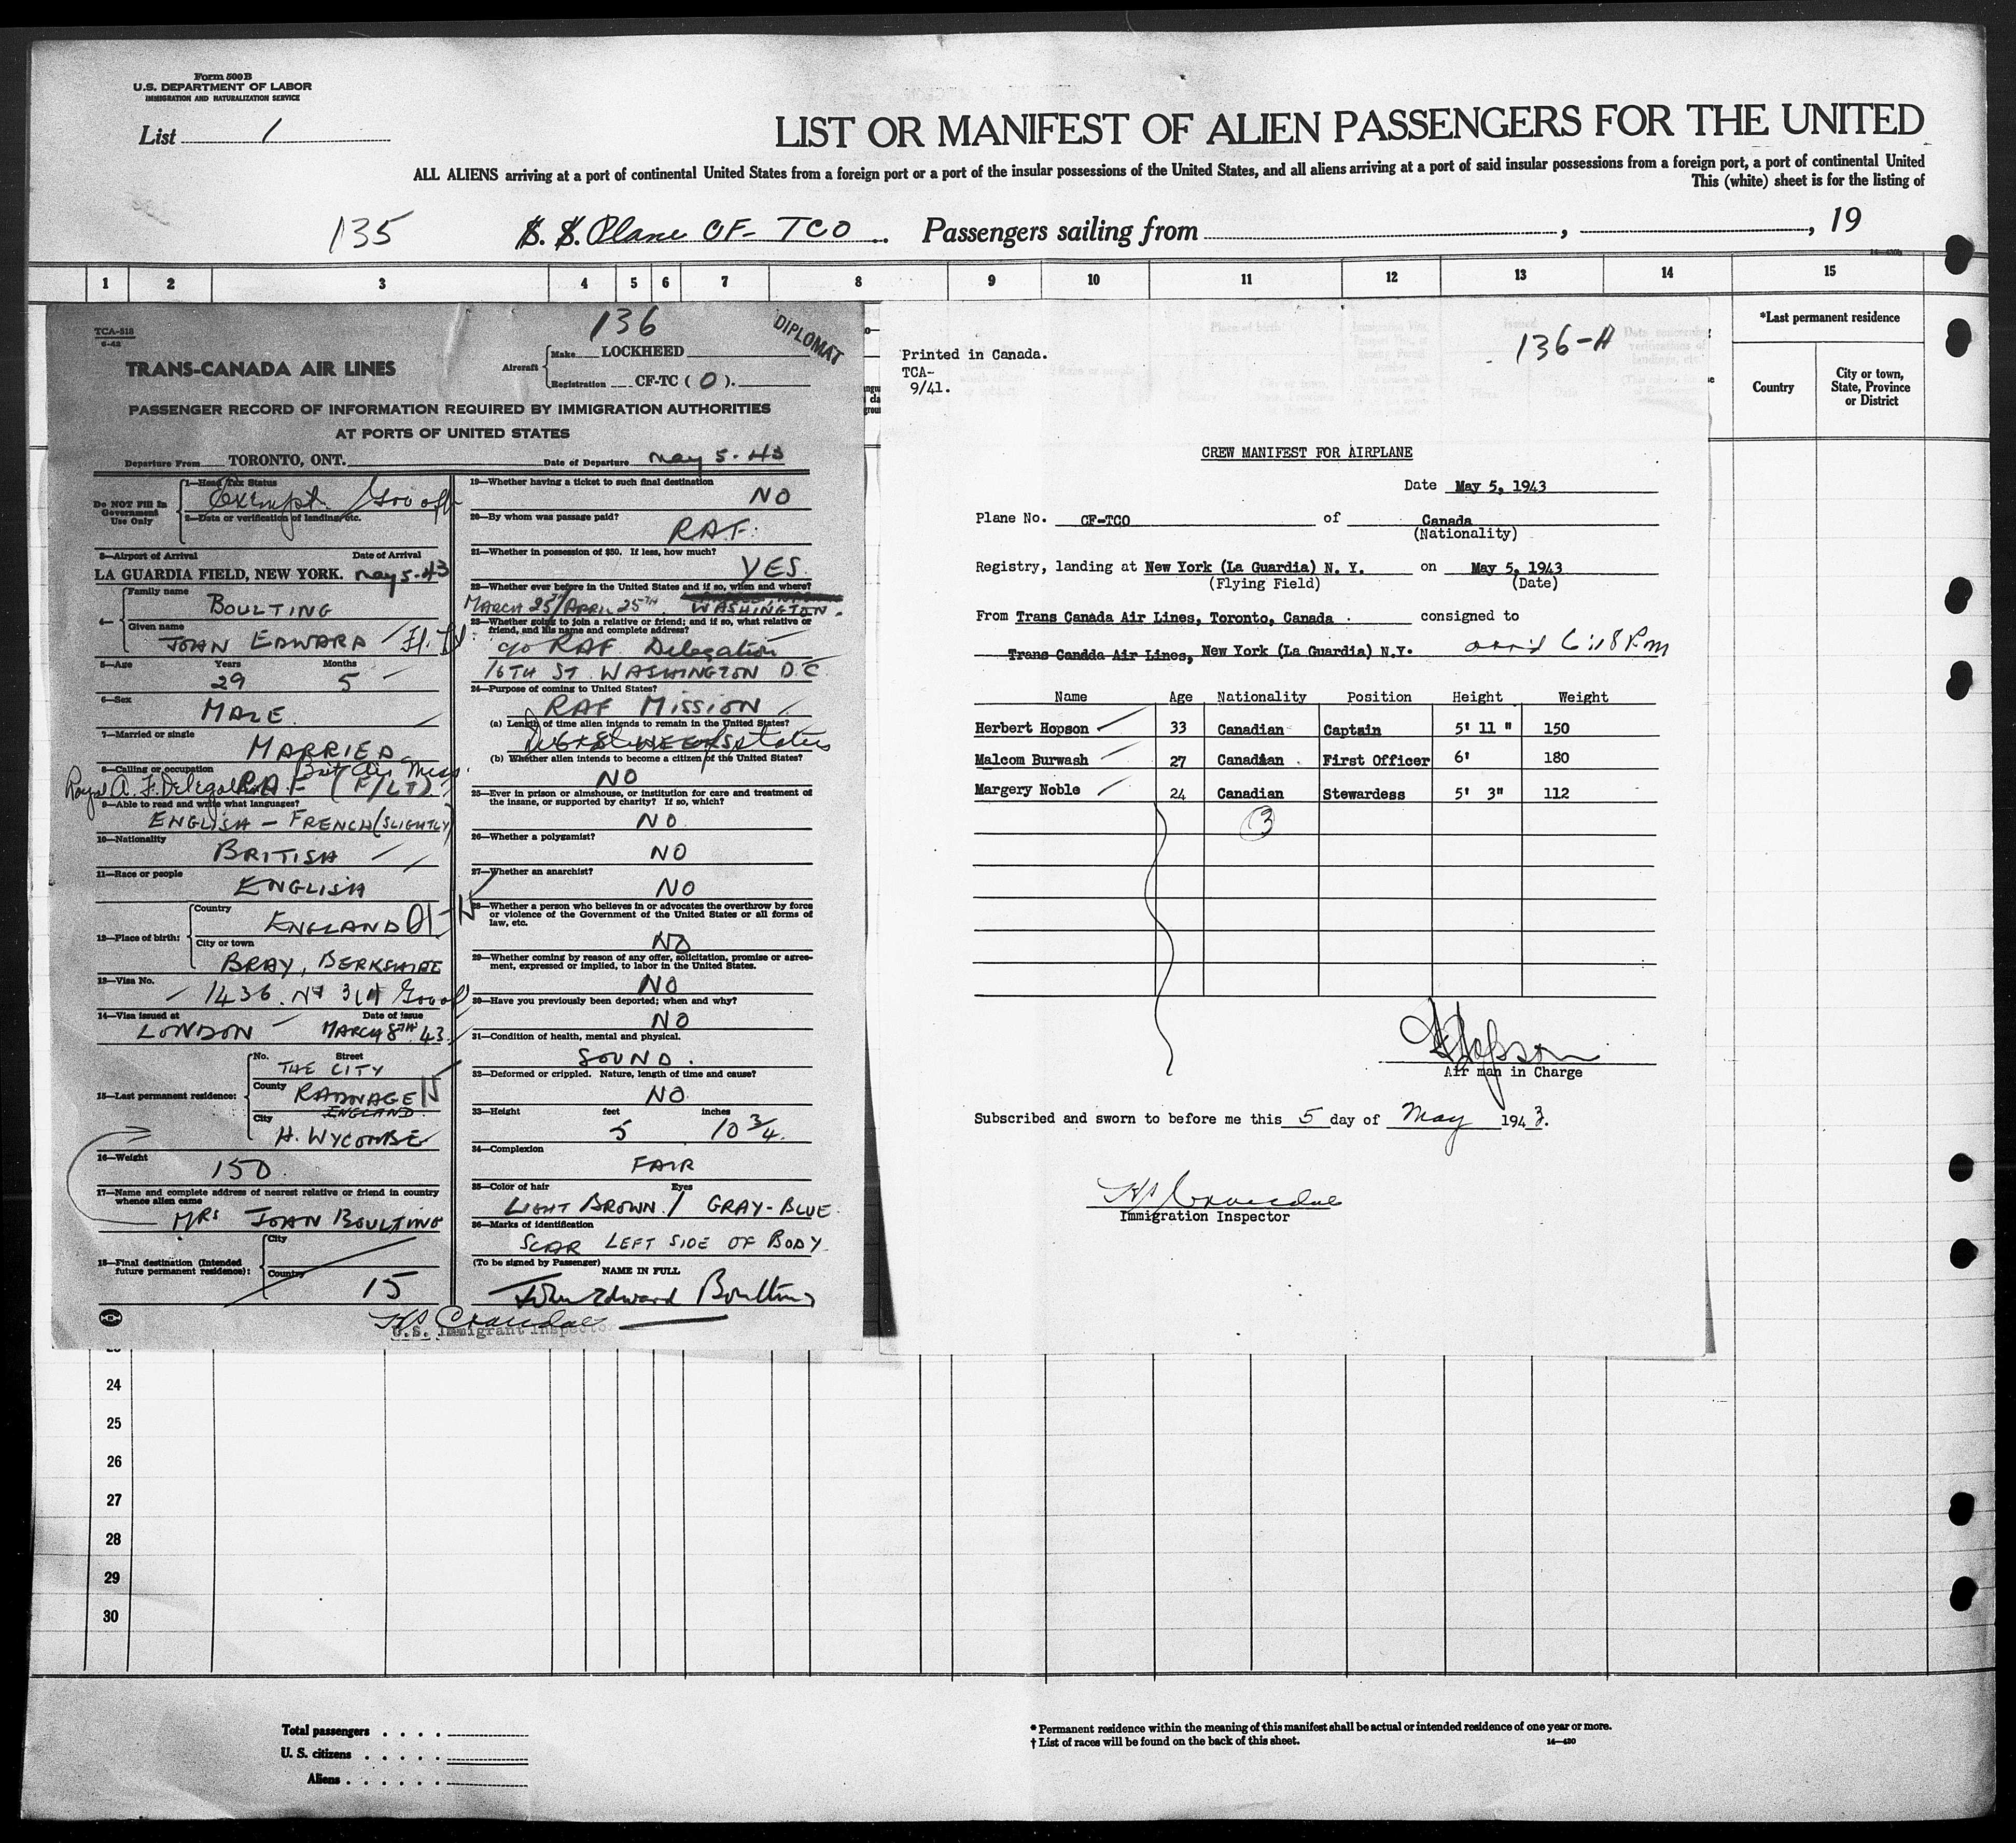 Form 500B
U.S. DEPARTMENT OF LABOR
IMMIGRATION AND NATURALIZATION SERVICE
List 1
LIST OR MANIFEST OF ALIEN PASSENGERS FOR THE UNITED
ALL ALIENS arriving at a port of continental United States from a foreign port or a port of the insular possessions of the United States, and all aliens arriving at a port of said insular possessions from a foreign port, a port of continental United
This (white) sheet is for the listing of
135 S. S. Plane CF-TCO Passengers sailing from , , 19
1 2 3 4 5 6 7 8 9 10 11 12 13 14 15
*Last permanent residence
Country
City or town, State, Province or District
TCA-518
6-42
136
DIPLOMAT
TRANS-CANADA AIR LINES
Aircraft
Make LOCKHEED
Registration CF-TC ( O ).
PASSENGER RECORD OF INFORMATION REQUIRED BY IMMIGRATION AUTHORITIES
AT PORTS OF UNITED STATES
Departure From TORONTO, ONT. Date of Departure May 5-43
Do NOT Fill In Government Use Only
1—Head Tax Status
Exempt
2—Data or verification of landing, etc.
3—Airport of Arrival Date of Arrival
LA GUARDIA FIELD, NEW YORK. May 5-43
4—
Family name
BOULTING
Given name
JOHN EDWARD
5—Age Years Months
29 5
6—Sex
MALE
7—Married or single
MARRIED
8—Calling or occupation
Royal A. F. Delegation RAF (F/LT)
9—Able to read and write what languages?
ENGLISH - FRENCH (SLIGHTLY)
10—Nationality
BRITISH
11—Race or people
ENGLISH
12—Place of birth:
Country
ENGLAND
City or town
BRAY, BERKSHIRE
13—Visa No.
1436
14—Visa issued at Date of issue
LONDON MARCH 8TH 43
15—Last permanent residence:
No. Street
THE CITY
County
RADNAGE
ENGLAND
City
H. WYCOMBE
16—Weight
150
17—Name and complete address of nearest relative or friend in country whence alien came
MRS JOAN BOULTING
18—Final destination (Intended future permanent residence):
City
Country
15
19—Whether having a ticket to such final destination
NO
20—By whom was passage paid?
RAF.
21—Whether in possession of $50. If less, how much?
YES
22—Whether ever before in the United States and if so, when and where?
MARCH 25TH/APRIL 25TH WASHINGTON.
23—Whether going to join a relative or friend; and if so, what relative or friend, and his name and complete address?
c/o RAF Delegation
16TH ST. WASHINGTON D.C.
24—Purpose of coming to United States?
RAF MISSION
(a) Length of time alien intends to remain in the United States?
(b) Whether alien intends to become a citizen of the United States?
NO
25—Ever in prison or almshouse, or institution for care and treatment of the insane, or supported by charity? If so, which?
NO
26—Whether a polygamist?
NO
27—Whether an anarchist?
NO
28—Whether a person who believes in or advocates the overthrow by force or violence of the Government of the United States or all forms of law, etc.
NO
29—Whether coming by reason of any offer, solicitation, promise or agreement, expressed or implied, to labor in the United States.
NO
30—Have you previously been deported; when and why?
NO
31—Condition of health, mental and physical.
SOUND.
32—Deformed or crippled. Nature, length of time and cause?
NO
33—Height feet inches
5 10 3/4
34—Complexion
FAIR
35—Color of hair Eyes
LIGHT BROWN / GRAY-BLUE
36—Marks of identification
SCAR LEFT SIDE OF BODY
(To be signed by Passenger)
NAME IN FULL
John Edward Boulting
U.S. Immigrant Inspector
Printed in Canada.
TCA-
9/41.
136-A
CREW MANIFEST FOR AIRPLANE
Date May 5, 1943
Plane No. CF-TCO of Canada
(Nationality)
Registry, landing at New York (La Guardia) N. Y. on May 5, 1943
(Flying Field) (Date)
From Trans Canada Air Lines, Toronto, Canada . consigned to
Trans Canada Air Lines, New York (La Guardia) N.Y. arrd 6:18 Pm
Name Age Nationality Position Height Weight
Herbert Hopson 33 Canadian Captain 5' 11" 150
Malcom Burwash 27 Canadian First Officer 6' 180
Margery Noble 24 Canadian Stewardess 5' 3" 112
3
H Hopson
Air man in Charge
Subscribed and sworn to before me this 5 day of May 1943.
Immigration Inspector
24
25
26
27
28
29
30
Total passengers . . . .
U. S. citizens . . . . .
Aliens . . . . . .
* Permanent residence within the meaning of this manifest shall be actual or intended residence of one year or more.
† List of races will be found on the back of this sheet.
14—430